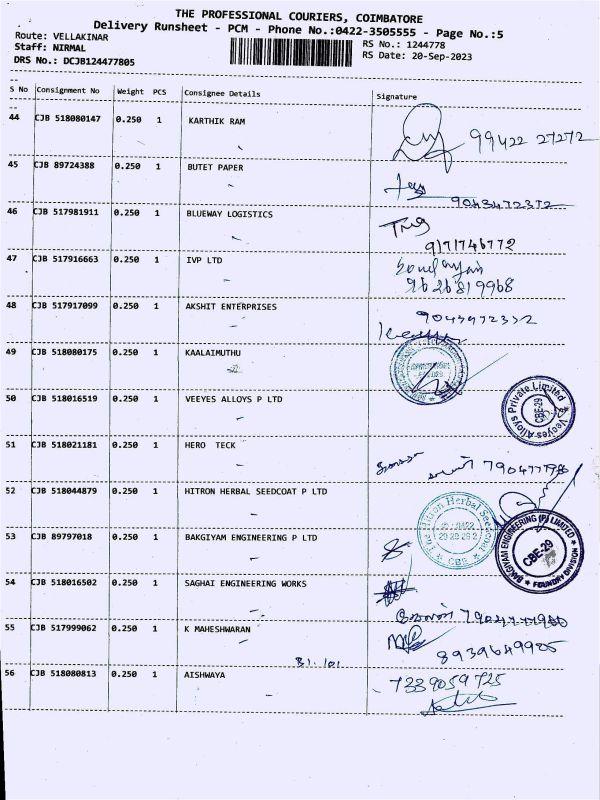 THE PROFESSIONAL COURIERS, COIMBATORE
Delivery Runsheet - PCM - Phone No.:0422-3505555 - Page No.:5
Route: VELLAKINAR
RS No.: 1244778
Staff: NIRMAL
RS Date: 20-Sep-2023
DRS No.: DCJB124477805
S No Consignment No Weight PCS Consignee Details Signature
44 CJB 518080147 0.250 1 KARTHIK RAM
99422 27272
45 CJB 89724388 0.250 1 BUTET PAPER
9043472372
46 CJB 517981911 0.250 1 BLUEWAY LOGISTICS
9171746772
47 CJB 517916663 0.250 1 IVP LTD
9626819968
48 CJB 517917099 0.250 1 AKSHIT ENTERPRISES
49 CJB 518080175 0.250 1 KAALAIMUTHU
50 CJB 518016519 0.250 1 VEEYES ALLOYS P LTD
Veeyes Alloys Private Limited
CBE-29
51 CJB 518021181 0.250 1 HERO TECK
52 CJB 518044879 0.250 1 HITRON HERBAL SEEDCOAT P LTD
The Hitron Herbal Seedcoat
CBE
53 CJB 89797018 0.250 1 BAKGIYAM ENGINEERING P LTD
BAKGIYAM ENGINEERING (P) LIMITED
CBE-29
FOUNDRY DIVISION
54 CJB 518016502 0.250 1 SAGHAI ENGINEERING WORKS
55 CJB 517999062 0.250 1 K MAHESHWARAN
8939649905
56 CJB 518080813 0.250 1 AISHWAYA
7339059725